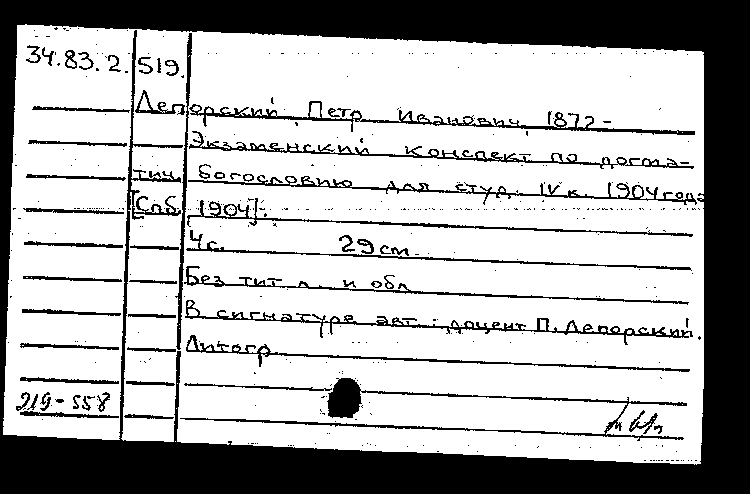 34.83.2.519.
Лепорский, Петр Иванович, 1872-
Экзаменский конспект по догма-
тич. богословию для студ. IV к. 1904 года
[Спб. 1904].
4 с. 29 см.
Без тит. л. и обл.
В сигнатуре авт.: доцент П. Лепорский.
Литогр.
219-558